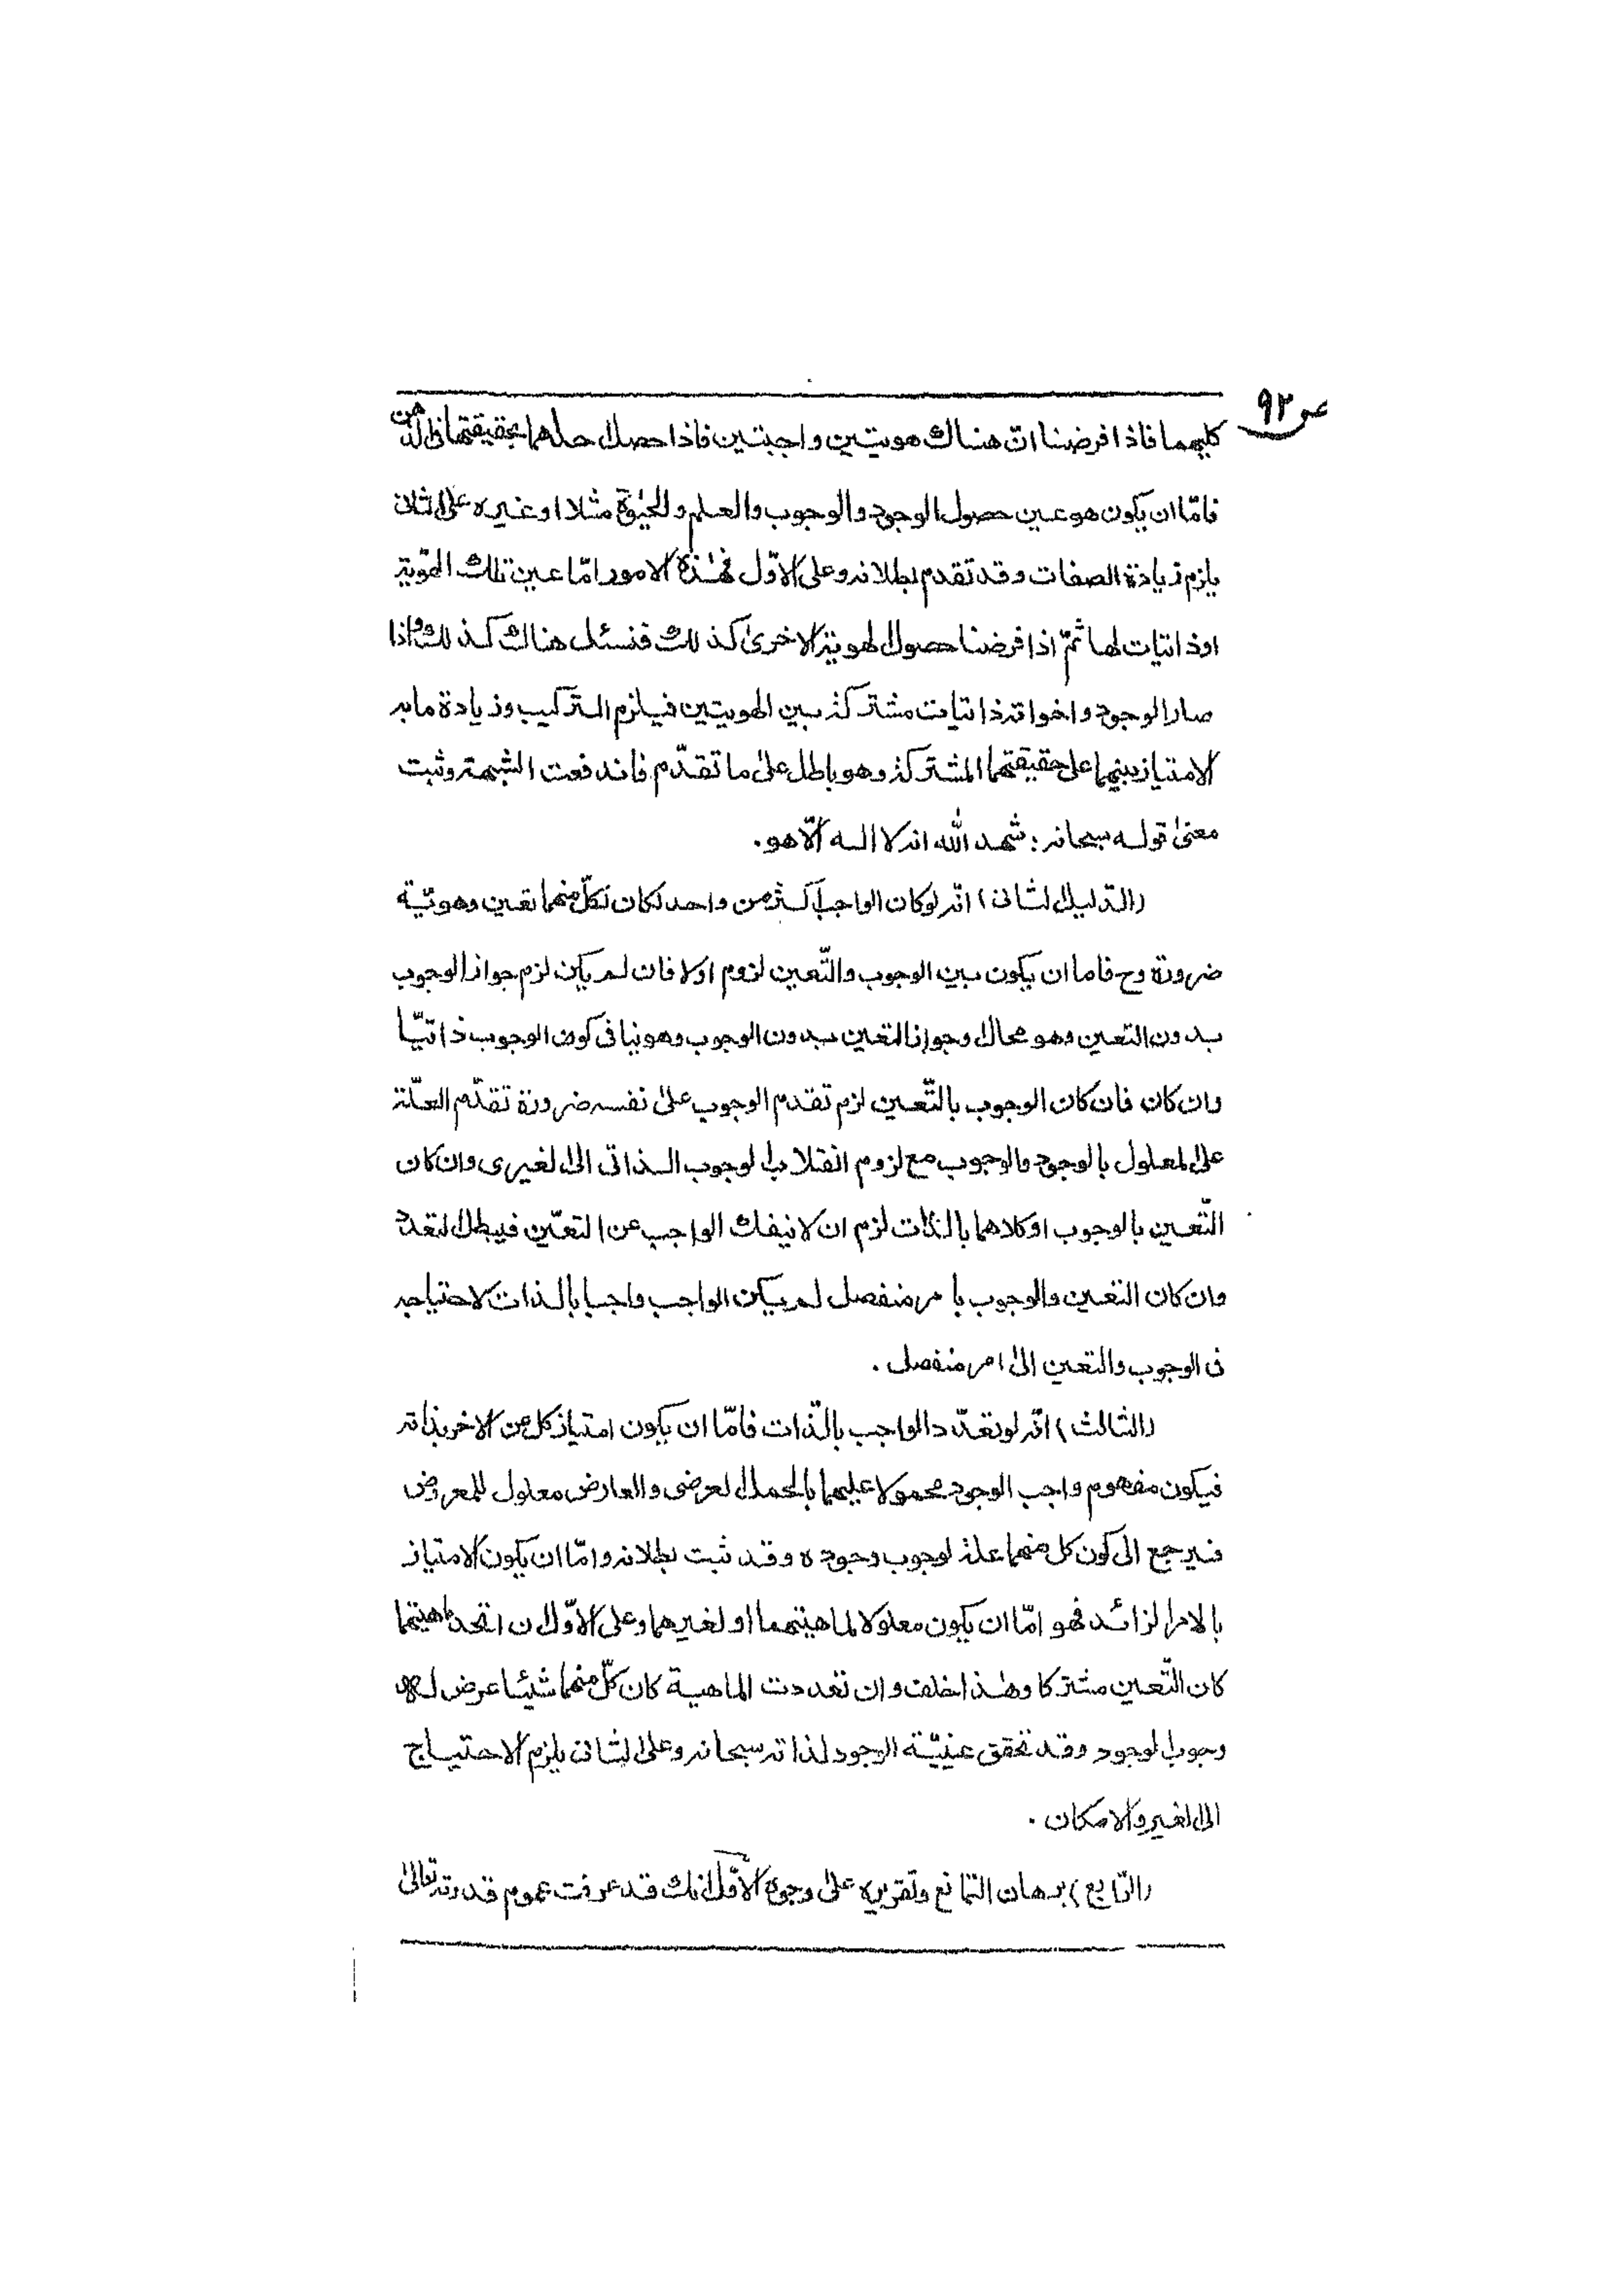 ص ٩٢
كليهما فاذا فرضنا انّ هناك هويتين واجبتين فاذا حصل احدهما بحقيقتها فى الذهن
فامّا ان يكون هو عين حصول الوجود والوجوب والعلم والحيٰوة مثلا او غيره على الثانى
يلزم زيادة الصفات وقد تقدم بطلانه وعلى الاوّل فهٰذه الامور امّا عين تلك الهوّية
او ذاتيات لها ثمّ اذا فرضنا حصول الهوية الاخرىٰ كذلك فنسئل هناك كذلك واذا
صار الوجود واخواته ذاتيات مشتركة بين الهويتين فيلزم التركيب وزيادة ما به
الامتياز بينهما على حقيقتهما المشتركة وهو باطل علىٰ ما تقدّم فاندفعت الشبهة وثبت
معنىٰ قوله سبحانه : شهد الله انه لا اله الّا هو .
(الدّليل الثانى) انّه لو كان الواجب اكثر من واحد لكان لكلّ منهما تعين وهويّة
ضرورة وح فاما ان يكون بين الوجوب والتّعين لزوم اولا فان لم يكن لزم جواز الوجوب
بدون التعين وهو محال وجواز التعين بدون الوجوب وهو ينافى كون الوجوب ذاتيّا
وان كان فان كان الوجوب بالتّعين لزم تقدم الوجوب علىٰ نفسه ضرورة تقدّم العلّة
على المعلول بالوجود والوجوب مع لزوم انقلاب الوجوب الذاتى الى الغيرى وان كان
التّعين بالوجوب او كلاهما بالذّات لزم ان لا ينفك الواجب عن التعيّن فيبطل التعدّد
وان كان التعين والوجوب بامر منفصل لم يكن الواجب واجبا بالذات لاحتياجه
فى الوجوب والتعين الىٰ امر منفصل .
(الثالث) انّه لو تعدّد الواجب بالذّات فامّا ان يكون امتياز كل من الاخر بذاته
فيكون مفهوم واجب الوجود محمولا عليهما بالحمل العرضى والعارض معلول للمعروض
فيرجع الى كون كل منهما علة لوجوب وجوده وقد ثبت بطلانه وامّا ان يكون الامتياز
بالامر الزائد فهو امّا ان يكون معلولا لماهيتهما او لغيرهما وعلى الاوّل ان اتحد ماهيتهما
كان التّعين مشتركا وهٰذا خلف وان تعددت الماهية كان كلّ منهما شيئا عرض له
وجوب الوجود وقد تحقق عينيّة الوجود لذاته سبحانه وعلى الثانى يلزم الاحتياج
الى الغير والامكان .
(الرّابع) برهان التمّانع وتقريره علىٰ وجوه الاوّل انك قد عرفت عموم قدرته تعالىٰ